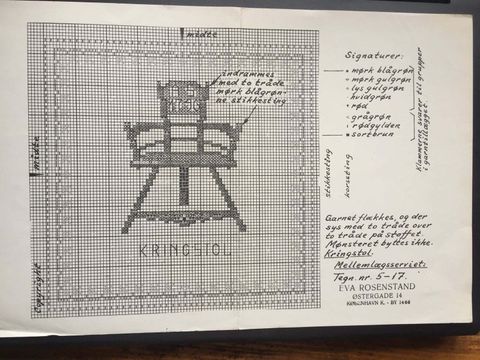 midte
indrammes
med to tråde
mørk blågrøn-
ne stikkesting
midte
KRINGSTOL
Copyright
Signaturer:
mørk blågrøn
mørk gulgrøn
lys gulgrøn
hvidgrøn
rød
grågrøn
rødgylden
sortbrun
Klammerne svarer til grupper
i garnstlægget.
stikkesting
korssting
Garnet flækkes, og der
sys med to tråde over
to tråde på stoffet.
Mønsteret byttes ikke.
Kringstol.
Mellemlægsserviet.
Tegn. nr. 5-17.
EVA ROSENSTAND
ØSTERGADE 14
KØBENHAVN K. - BY 1466